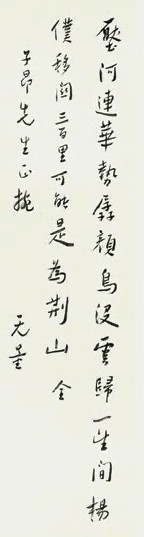 壓河連華勢孱顏鳥没雲歸一望間楊
僕移關三百里可能是為荆山 全
子昂先生正捥
无量